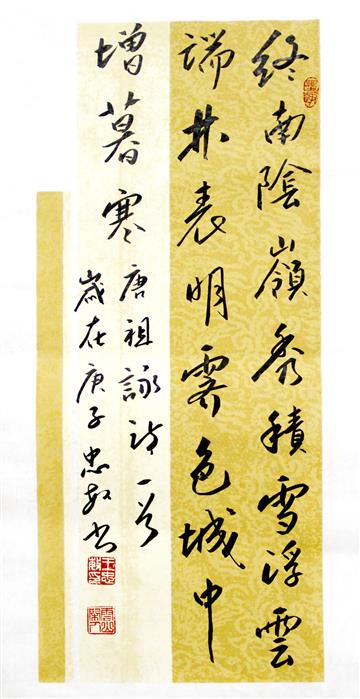 終南陰嶺秀積雪浮雲
端林表明霽色城中
增暮寒
唐祖詠詩一首
歲在庚子忠書